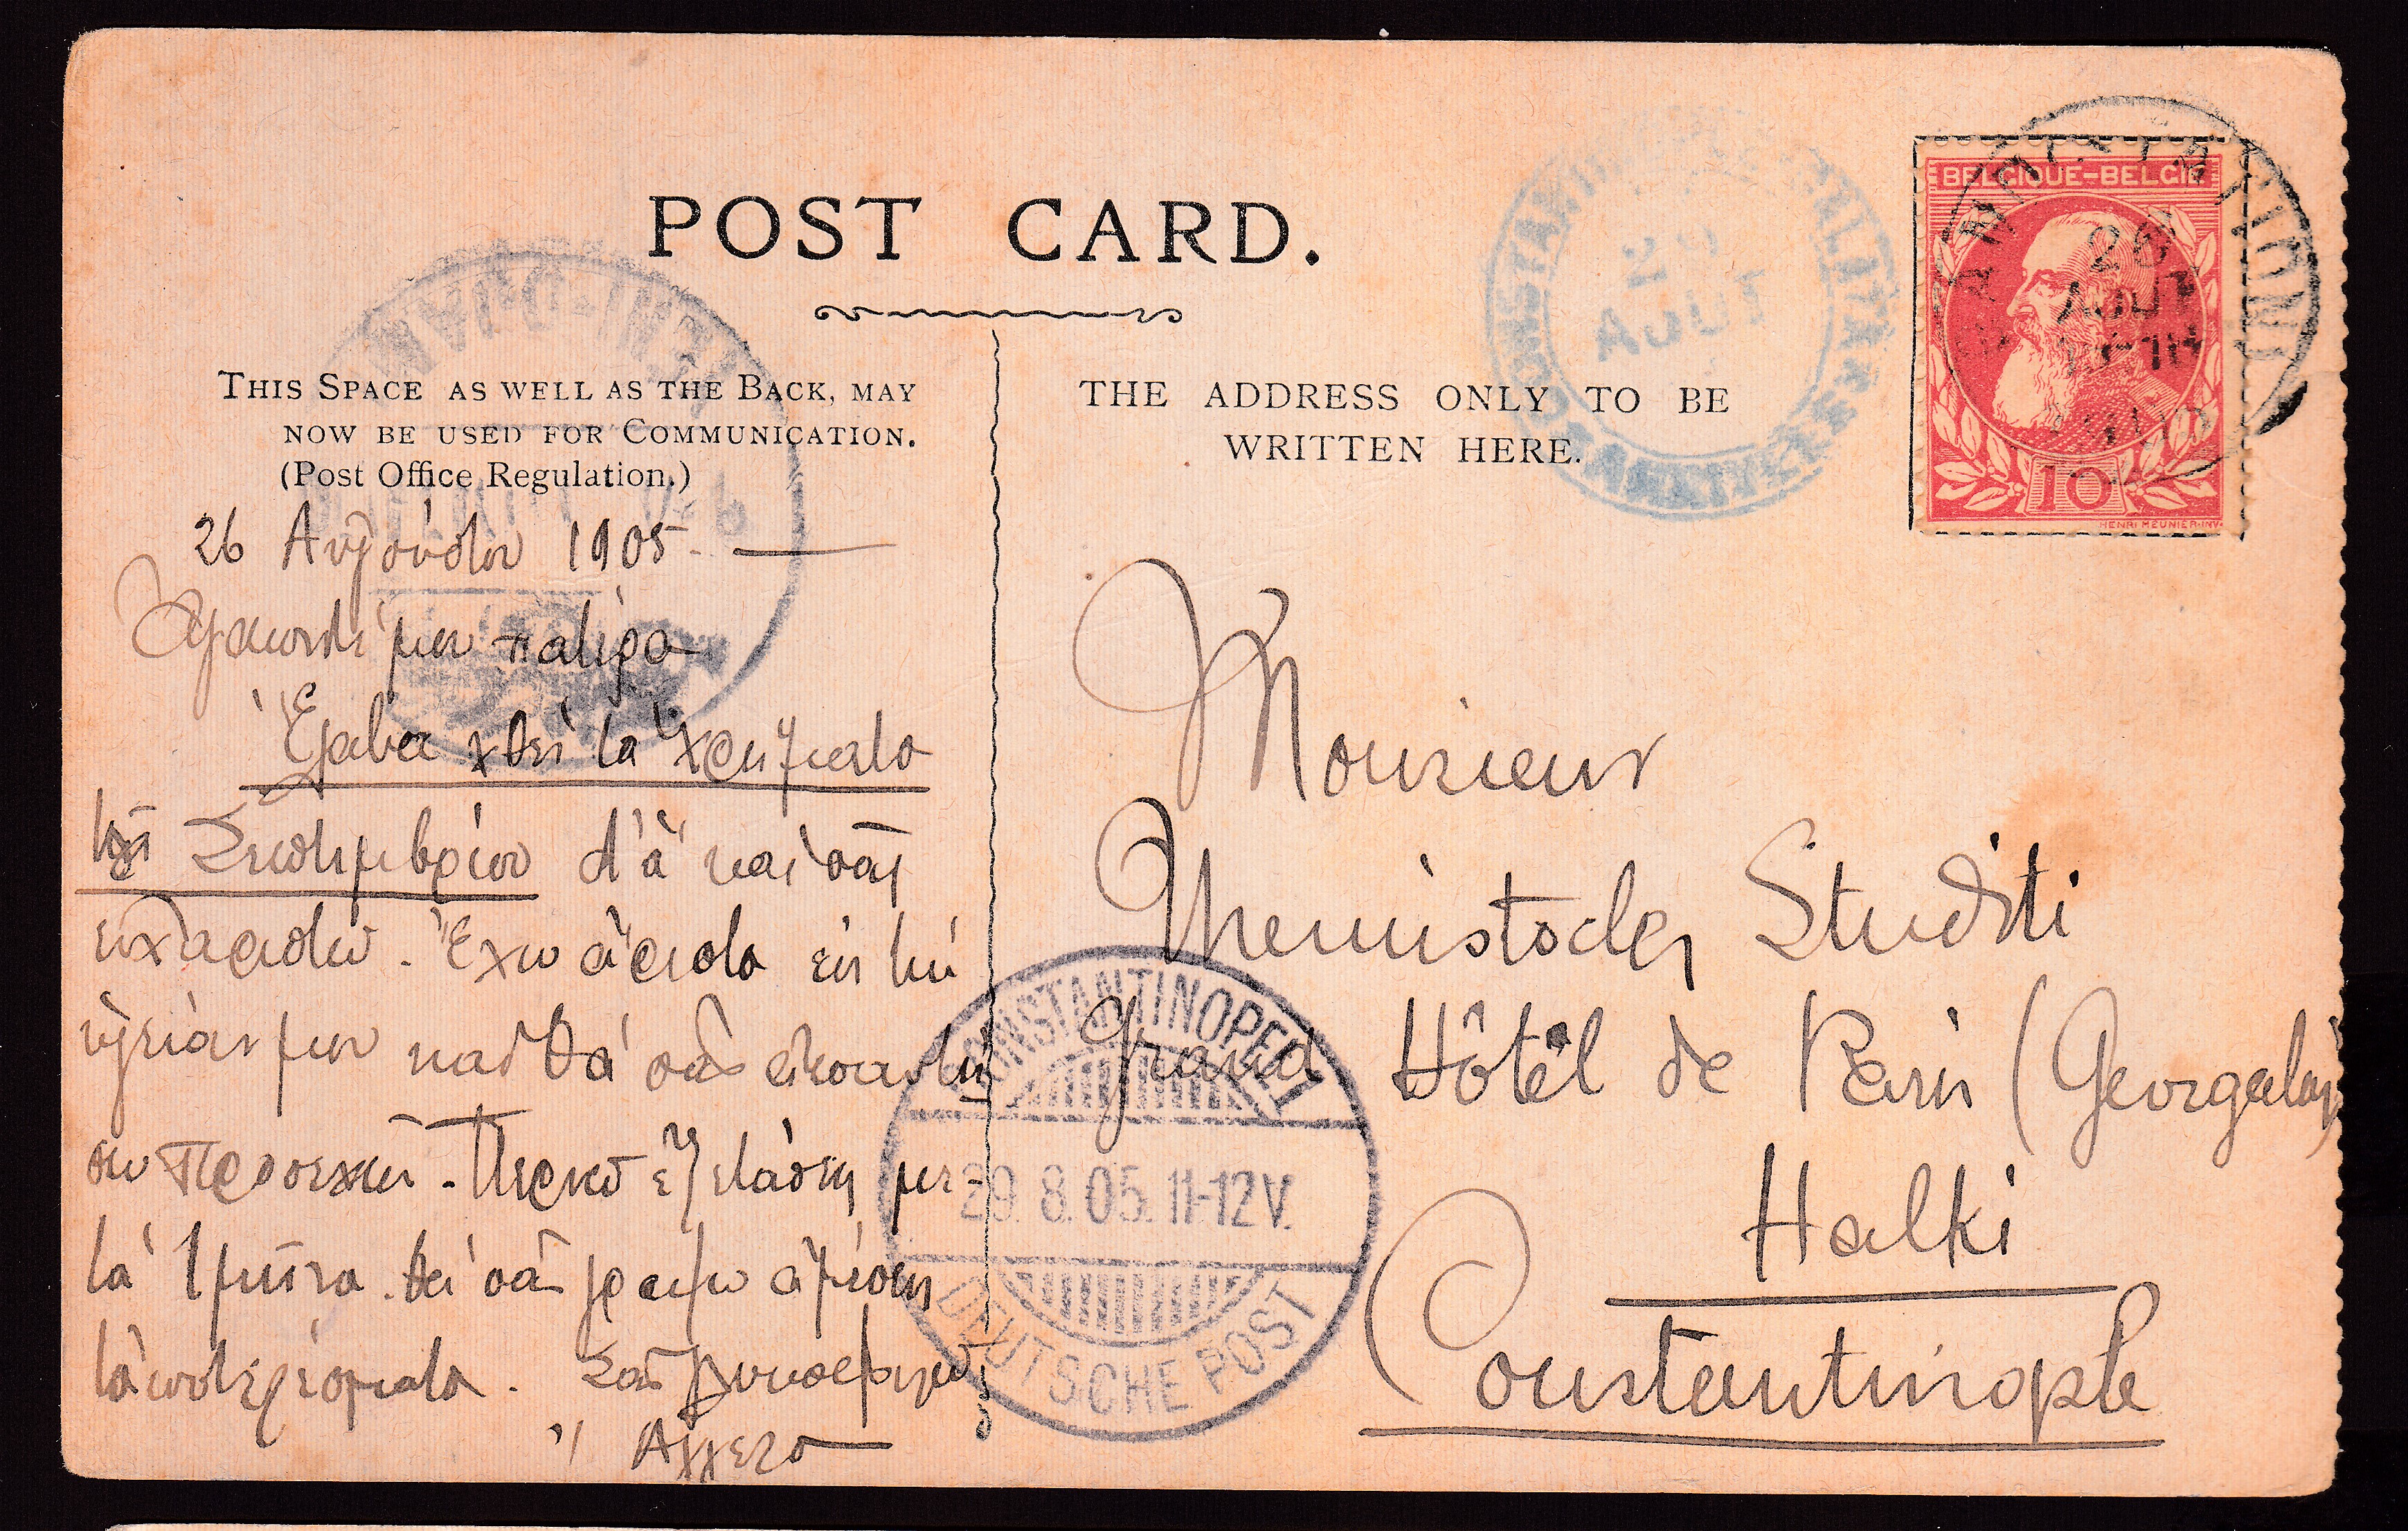 POST CARD.
THIS SPACE AS WELL AS THE BACK, MAY
NOW BE USED FOR COMMUNICATION.
(Post Office Regulation.)
THE ADDRESS ONLY TO BE
WRITTEN HERE.
BELGIQUE-BELGIE
26
AOUT
10
HENRI MEUNIER·INV.
29
AOUT
26 Αυγούστου 1905.
Αγαπητέ μου πατέρα
Έλαβα χθες τα χρήματα
Σεπτεμβρίου δι' ά και σας
ευχαριστώ. Έχω άριστα εις την
υγείαν μου και θα σας
προσεχώς. Περνώ εξετάσεις με-
τά 1 μήνα. θα σας γράψω αμέσως
τ' αποτελέσματα. Σας γλυκοφιλώ
Monsieur
Themistocles Studiti
Grand Hôtel de Paris (Georgalas)
Halki
Constantinople
CONSTANTINOPEL 1
29.8.05.11-12V.
DEUTSCHE POST